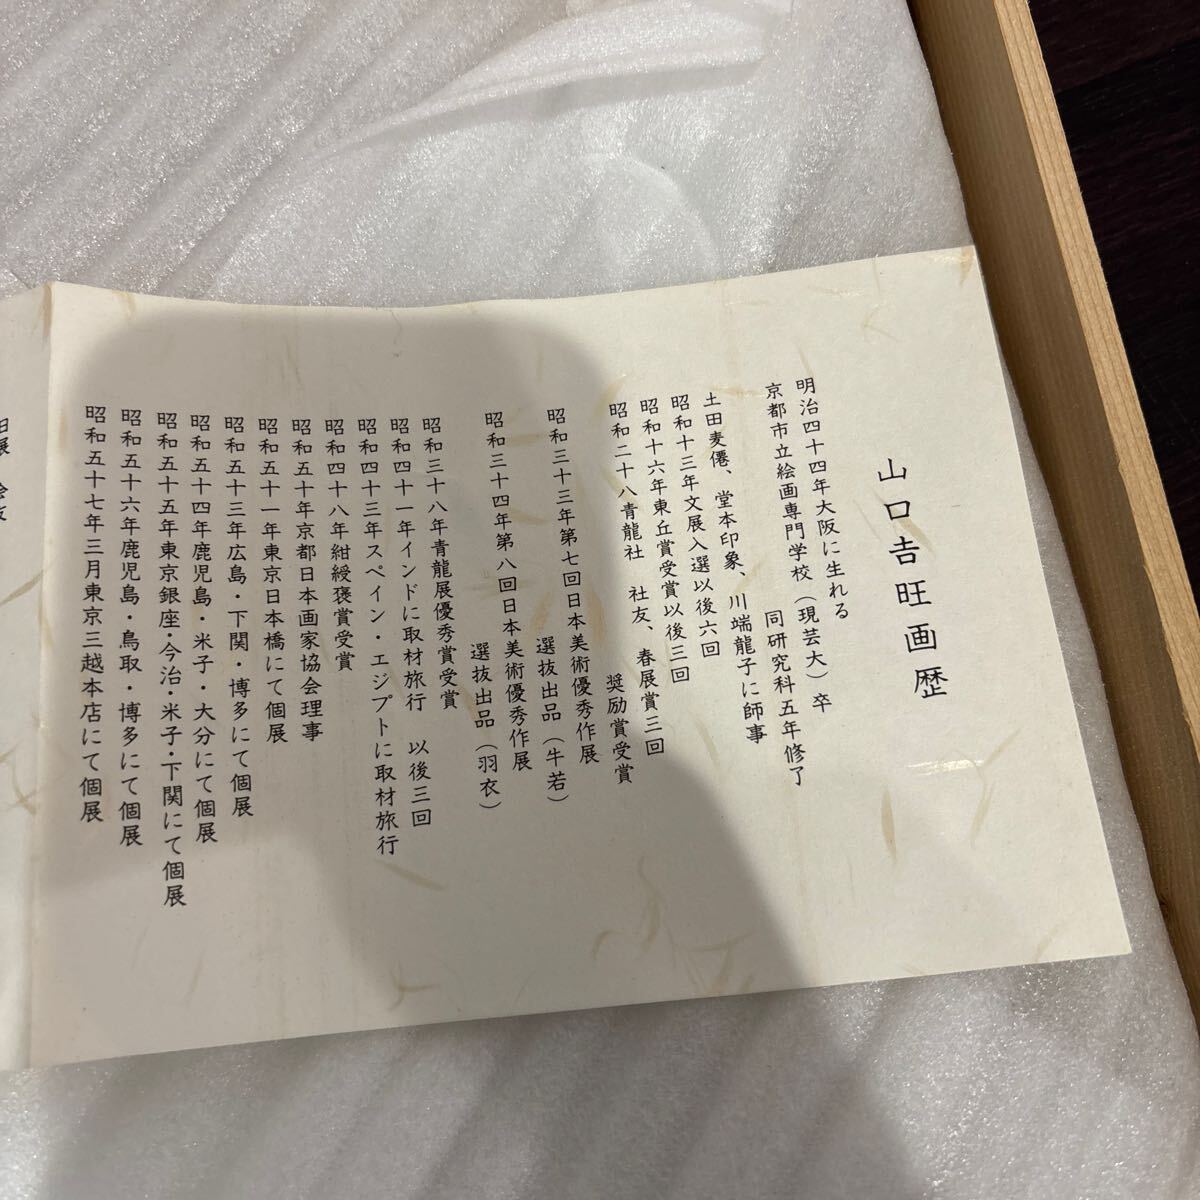 山口吉旺画歴
明治四十四年大阪に生れる
京都市立絵画専門学校（現芸大）卒
同研究科五年修了
土田麦僊、堂本印象、川端龍子に師事
昭和十三年文展入選以後六回
昭和十六年東丘賞受賞以後三回
昭和二十八青龍社 社友、春展賞三回
奨励賞受賞
昭和三十三年第七回日本美術優秀作展
選抜出品（牛若）
昭和三十四年第八回日本美術優秀作展
選抜出品（羽衣）
昭和三十八年青龍展優秀賞受賞
昭和四十一年インドに取材旅行 以後三回
昭和四十三年スペイン・エジプトに取材旅行
昭和四十八年紺綬褒賞受賞
昭和五十年京都日本画家協会理事
昭和五十一年東京日本橋にて個展
昭和五十三年広島・下関・博多にて個展
昭和五十四年鹿児島・米子・大分にて個展
昭和五十五年東京銀座・今治・米子・下関にて個展
昭和五十六年鹿児島・鳥取・博多にて個展
昭和五十七年三月東京三越本店にて個展